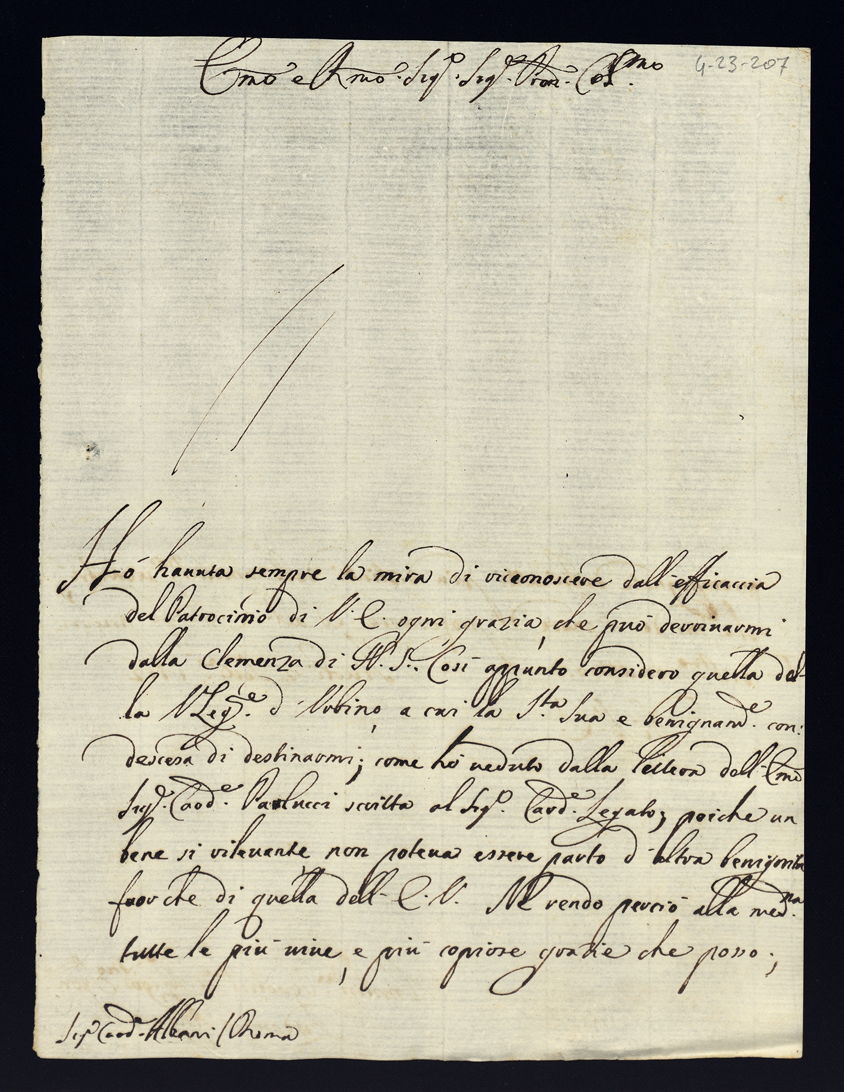 Emo e Rmo Sigr. Sigr. Pron. Colmo
4-23-207
Hó hauuta sempre la mira di riconoscere dall'efficaccia
del Patrocinio di V. E. ogni grazia, che può deriuarmi
dalla Clemenza di N. S. Così appunto considero quella del-
la VLegne. d'Vrbino, a cui la Sta. Sua e benignamte. con:
descesa di destinarmi; come hò ueduto dalla lettera dell'Emo
Sigr. Carde. Paolucci scritta al Sigr. Carde. Legato; poiche un
bene si rileuante non poteua essere parto d'altra benignità
fuor che di quella dell'E. V. Ne rendo perciò alla medma.
tutte le più uiue, e più copiose grazie che posso;
Sigr Card. Albani / Roma